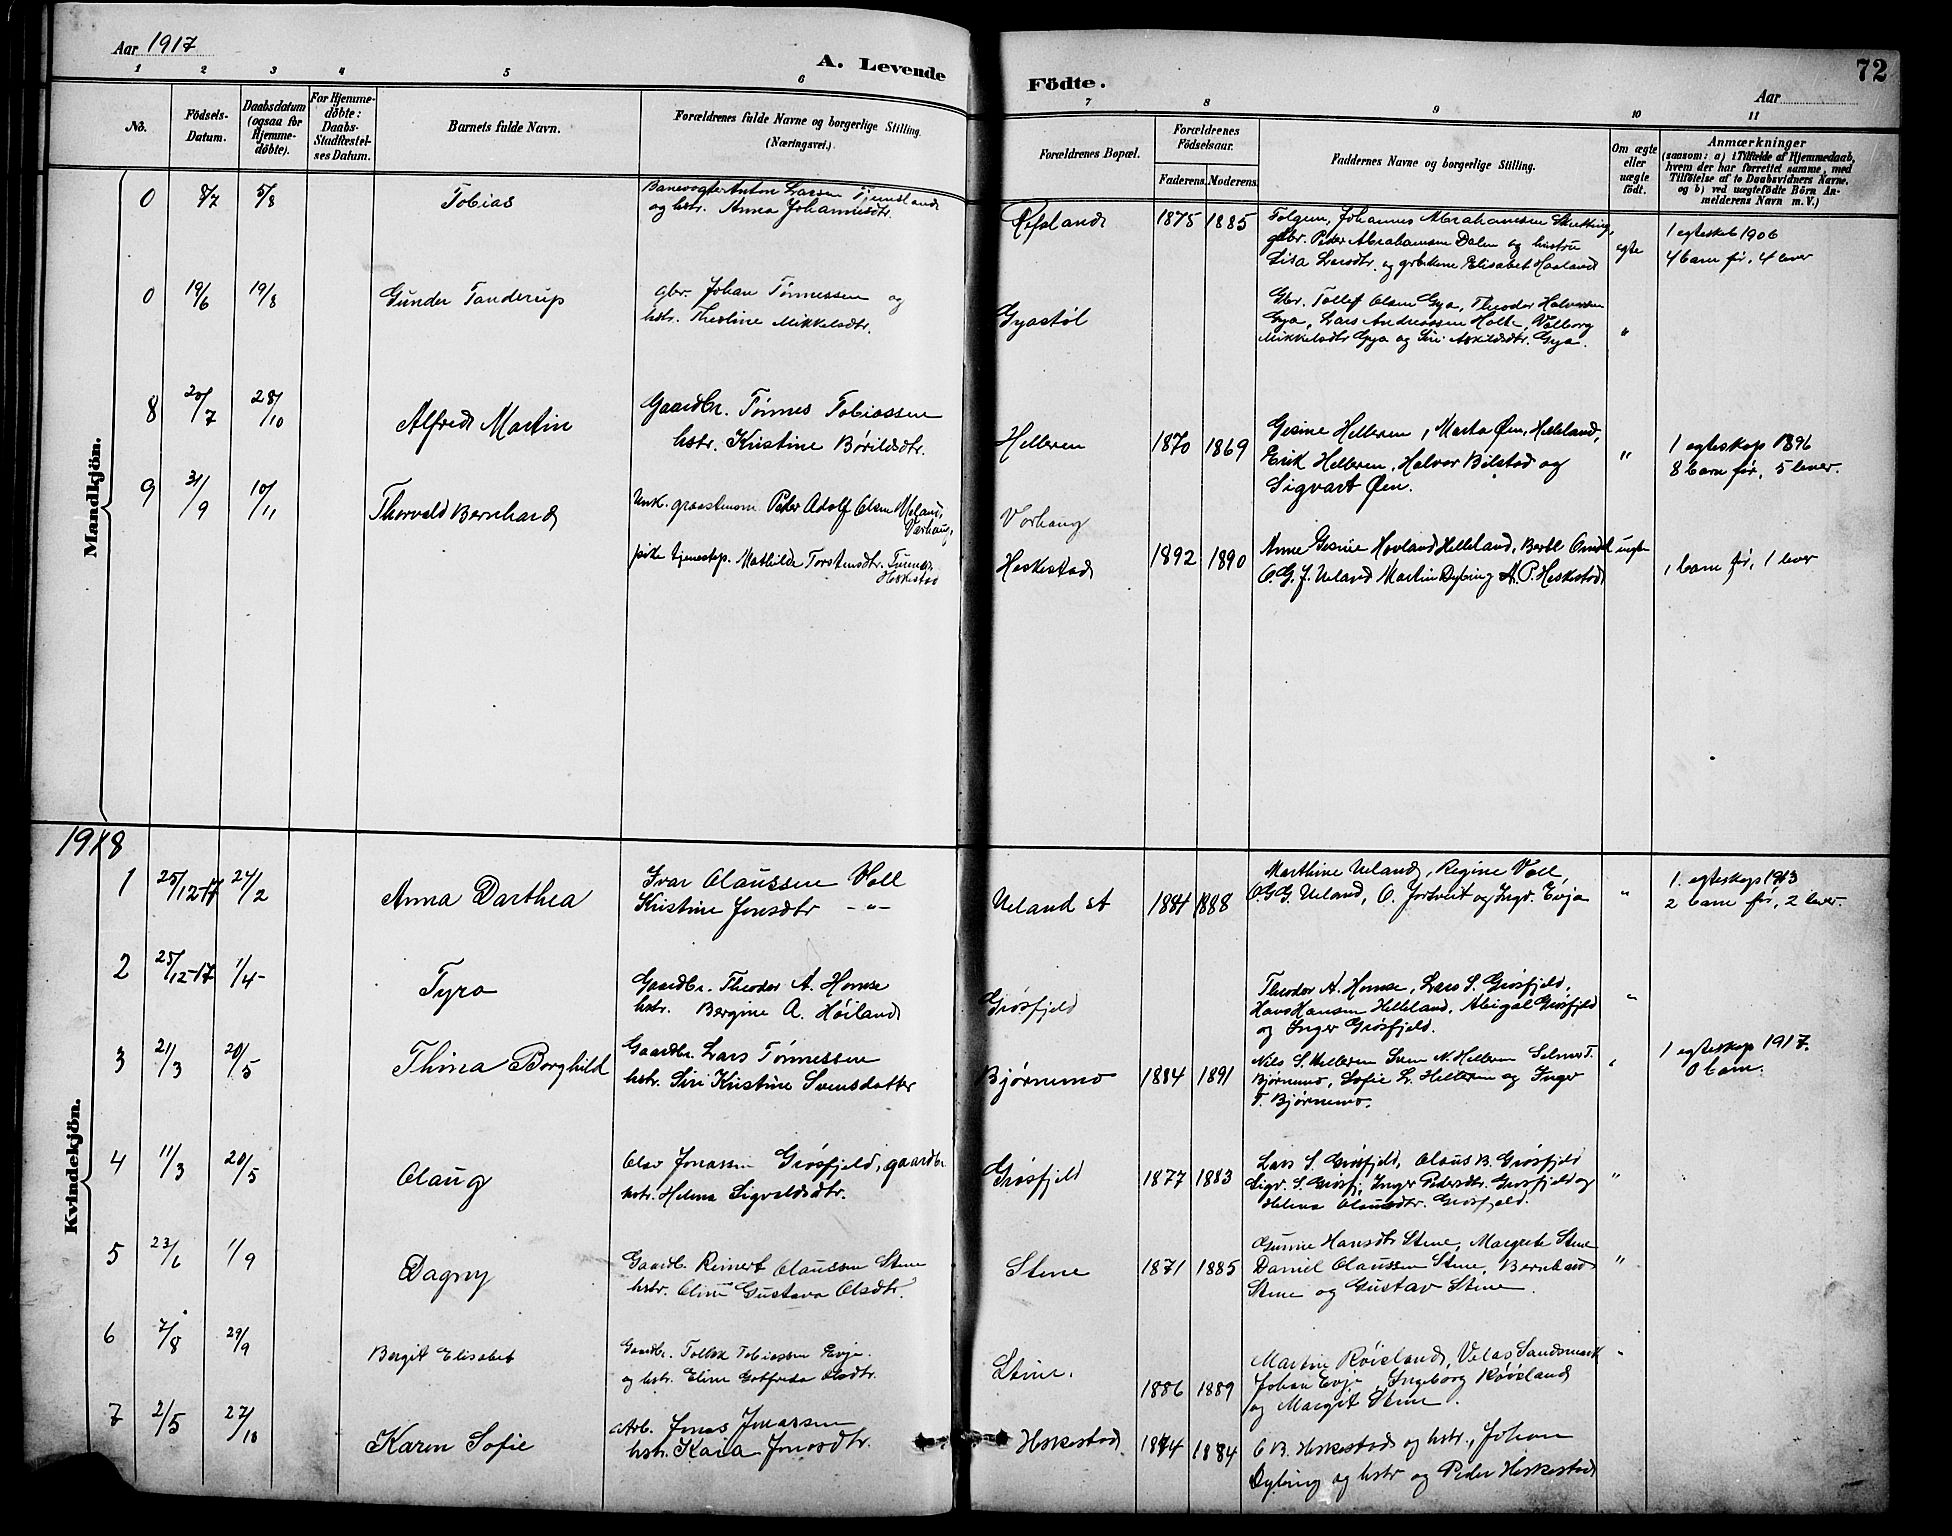 Aar 1917
A. Levende Födte.
72
Aar
1 2 3 4 5 6 7 8 9 10 11
No.
Födsels-Datum.
Daabsdatum (ogsaa for Hjemme-døbte).
For Hjemme-døbte: Daabs-Stadfæstel-ses Datum.
Barnets fulde Navn.
Forældrenes fulde Navne og borgerlige Stilling. (Næringsvei.)
Forældrenes Bopæl.
Forældrenes Födselsaar.
Faderens. Moderens.
Faddernes Navne og borgerlige Stilling.
Om ægte eller uægte födt.
Anmærkninger (saasom: a) i Tilfælde af Hjemmedaab, hvem der har forrettet samme, med Tilföielse af to Daabsvidners Navne, og b) ved uægtefödte Börn An-melderens Navn m. V.)
Mandkjön.
0 8/7 5/8 Tobias
Banevogter Anton Larsen Tjemsland
og hstr. Anna Johannesdtr.
Øifsland 1875 1885
Johannes Abrahamsen Skretting,
gbr. Peder Abrahamsen Dalen og hustru
Lisa Larsdtr. og Elisabet Haaland
egte
1 egteskab 1906
4 barn før, 4 lever
0 19/6 19/8 Gunder Tanderup
gbr. Johan Tönnessen og
hstr. Theoline Mikkelsdtr.
Gyastøl
Gbr. Tollef Olsen Gya, Theodor Halvorsen
Gya, Lars Andreassen Holte, Valborg
Mikkelsdtr Gya og Siri Askildsdtr. Gya.
"
8 20/7 28/10 Alfred Martin
Gaardbr. Tönnes Tobiassen
hstr. Kristine Børildsdtr.
Helleren 1870 1869
Gesine Helleren, Marta Øen, Helleland,
Erik Helleren, Halvor Bilstad og
Sigvart Øen.
"
1 egteskap 1896
8 barn før, 5 lever.
9 31/9 10/11 Thorvald Bernhard
Unk. graastensm. Peter Adolf Olsen Meland,
Varhaug,
pike tjenestep. Mathilde Torstensdtr.
Heskestad
Varhaug
Heskestad 1892 1890
Anne Gesine Hovland Helleland, Bertl Omdal
O. G. J. Ueland Martin Dybing A. P. Heskestad
uegte
1 barn før, 1 lever
1918
Kvindekjön.
1 25/12-17 24/2 Anna Darthea
Ivar Olaussen Voll
Kristine Jonsdtr -"-
Ueland st 1884 1888
Marthine Ueland, Regine Voll,
O.G.G. Ueland, O. Jortveit og Ingv. Evja
"
1. egteskap 1913
2 barn før, 2 lever.
2 25/12-17 1/4- Tyra
Gaardbr. Theodor A. Homse
hstr. Bergine A. Höiland
Grøsfjeld
Theodor A. Homse, Lars S. Grøsfjeld,
Hans Hansen Helleland, Abigal Grøsfjeld
og Inger Grøsfjeld.
"
3 21/3 20/5 Thinea Borghild
Gaardbr. Lars Tønnessen
hstr. Siri Kristine Svensdatter
Bjørnemo 1884 1891
Nils S. Helleren Sven N. Helleren Selmer T.
Bjørnemo, Sofie L. Helleren og Inger
T. Bjørnemo.
"
1 egteskap 1917.
0 barn.
4 11/3 20/5 Olaug
Olav Jonassen Grøsfjeld, gaardbr
hstr. Helene Sigvaldsdtr.
Grøsfjeld 1877 1883
Lars S. Grøsfjeld, Olaus B. Grøsfjeld
Sigv. S. Grøsfj, Inger Pedersdtr. Grøsfjeld og
Helene Olausdtr. Grøsfjeld.
"
5 23/6 1/9 Dagny
Gaardbr. Reinert Olaussen Stene
hstr. Oline Gustava Olsdtr.
Stene 1871 1885
Gunnie Hansdtr Stene, Margrete Stene
Daniel Olaussen Stene, Bernhard
Stene og Gustav Stene.
"
6 7/8 29/9 Bergit Elisabet
Gaardbr. Tollak Tobiassen Evje.
og hstr. Eline Gotfreda Olsdtr.
Stene. 1886 1889
Martine Røisland, Velas Sandsmark
Johan Evje, Ingeborg Røisland
og Margit Stene.
"
7 2/5 27/10 Karen Sofie
Arb. Jonas Jonassen
hstr. Kaia Jonasdtr.
Heskestad 1874 1884
O B. Heskestad og hstr., Johan
Dybing og hstr og Peder Heskestad